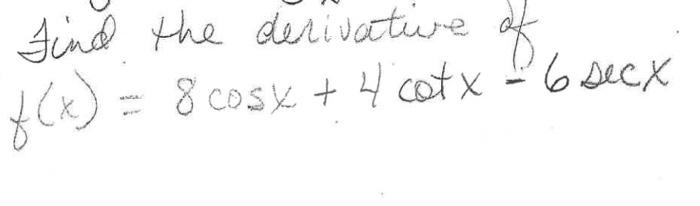 Find the derivative of
f(x) = 8 cosx + 4 cotx - 6 secx